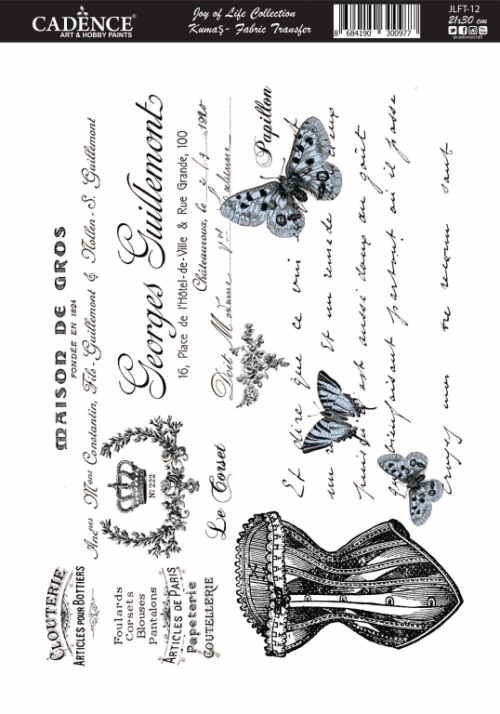 CADENCE
ART & HOBBY PAINTS
Joy of Life Collection
Kumaş- Fabric Transfer
8 684190 300977
JLFT-12
21x30 cm
cadencecraft
MAISON DE GROS
FONDÉE EN 1824
Ancnes Mons Constantin, Fils-Guillemont & Nollen-S. Guillemont
Georges Guillemont
16, Place de l'Hôtel-de-Ville & Rue Grande, 100
Châteauroux, le
Doit
Papillon
No 222
Le Corset
CLOUTERIE
ARTICLES POUR BOTTIERS
Foulards
Corsets
Blouses
Pantalons
ARTICLES DE PARIS
Papeterie
COUTELLERIE
Et dire que ce
Et un remede
est aussi doux au goût
partout où il passe